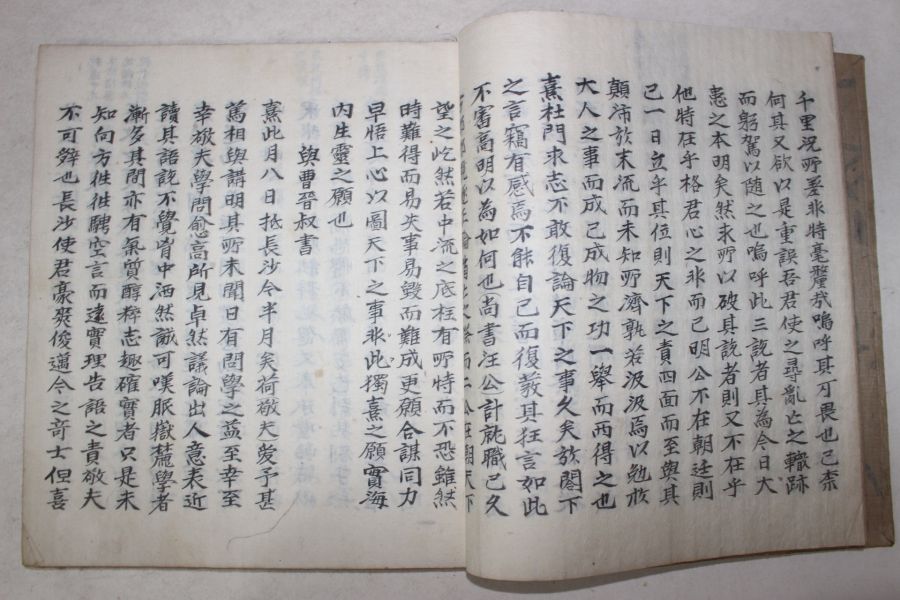 千里況所憂非特毫釐哉嗚呼其可畏也已柰
何其又欲以是重誤吾君使之尋亂亡之轍跡
而躬駕以隨之也嗚呼此三說者其為今日大
患之本明矣然求所以破其說者則又不在乎
他特在乎格君心之非而已明公不在朝廷則
已一日立乎其位則天下之責四面而至與其
顛沛於末流而未知所濟孰若汲汲焉以勉於
大人之事而成己成物之功一擧而兩得之也
熹杜門求志不敢復論天下之事久矣於閤下
之言竊有感焉不能自已而復敎其狂言如此
不審高明以為如何也尚書汪公計就職已久
二公在朝天下
望之屹然若中流之底柱有所恃而不恐雖然
時難得而易失事易毀而難成更願合謀同力
早悟上心以圖天下之事非此獨熹之願實海
內生靈之願也
與曹晉叔書
熹此月八日抵長沙今半月矣荷敬夫愛予甚
篤相與講明其所未聞日有問學之益至幸至
幸敬夫學問愈高所見卓然議論出人意表近
讀其語說不覺胷中洒然誠可嘆服嶽麓學者
漸多其間亦有氣質醇粹志趣確實者只是未
知向方往往騁空言而遠實理告語之責敬夫
不可辭也長沙使君豪爽俊邁今之奇士但喜